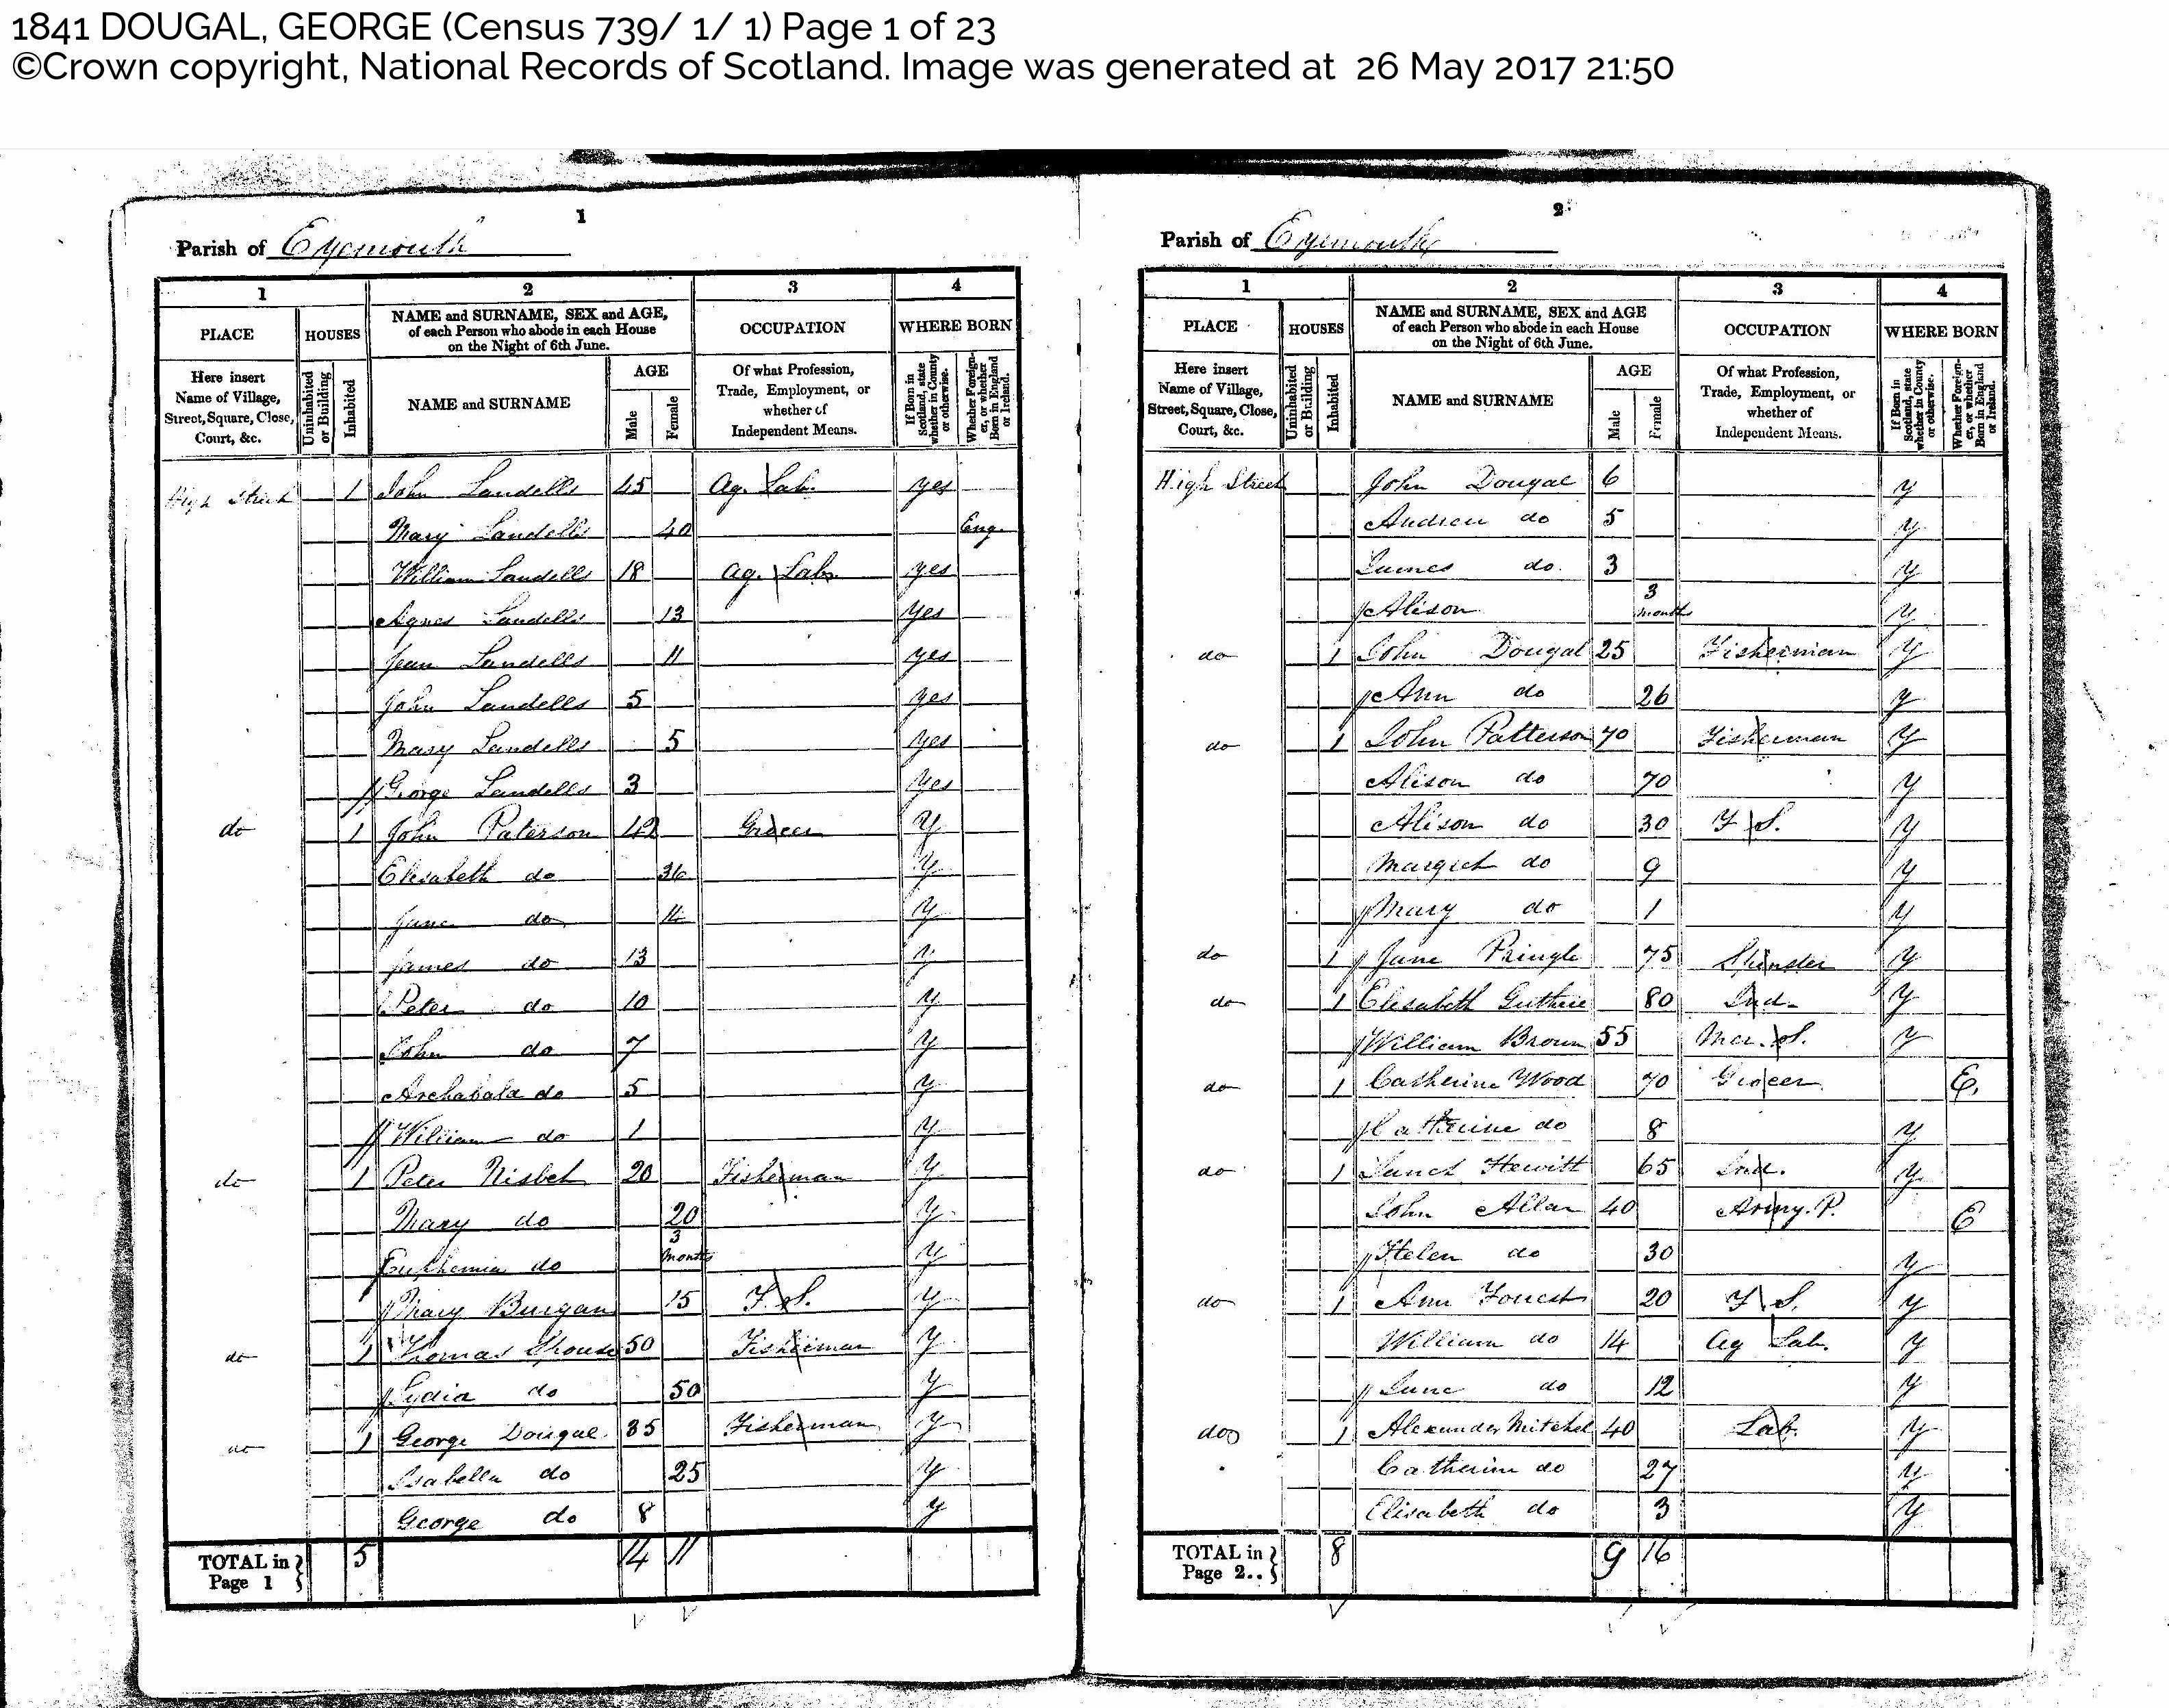 1841 DOUGAL, GEORGE (Census 739/ 1/ 1) Page 1 of 23
©Crown copyright, National Records of Scotland. Image was generated at 26 May 2017 21:50
1
Parish of Eyemouth
1 2 3 4
PLACE HOUSES NAME and SURNAME, SEX and AGE, of each Person who abode in each House on the Night of 6th June. OCCUPATION WHERE BORN
Here insert Name of Village, Street, Square, Close, Court, &c. Uninhabited or Building Inhabited NAME and SURNAME AGE Male Female Of what Profession, Trade, Employment, or whether of Independent Means. If Born in Scotland, state whether in County or otherwise. Whether Foreigner, or whether Born in England or Ireland.
High Street 1 John Landells 45 Ag. Lab. yes
Mary Landells 40 Eng.
William Landells 18 Ag. Lab. yes
Agnes Landells 13 yes
Jean Landells 11 yes
John Landells 5 yes
Mary Landells 5 yes
George Landells 3 yes
do 1 John Paterson 42 Grocer y
Elisabeth do 36 y
Jane do 14 y
James do 13 y
Peter do 10 y
John do 7 y
Archabald do 5 y
William do 1 y
do 1 Peter Nisbet 20 Fisherman y
Mary do 20 y
Euphemia do 3 months y
Mary Burgan 15 F.S. y
do 1 Thomas Spouse 50 Fisherman y
Lydia do 50 y
do 1 George Dougal 35 Fisherman y
Isabella do 25 y
George do 8 y
TOTAL in Page 1 5 14 11
2
Parish of Eyemouth
1 2 3 4
PLACE HOUSES NAME and SURNAME, SEX and AGE of each Person who abode in each House on the Night of 6th June. OCCUPATION WHERE BORN
Here insert Name of Village, Street, Square, Close, Court, &c. Uninhabited or Building Inhabited NAME and SURNAME AGE Male Female Of what Profession, Trade, Employment, or whether of Independent Means. If Born in Scotland, state whether in County or otherwise. Whether Foreigner, or whether Born in England or Ireland.
High Street John Dougal 6 y
Andrew do 5 y
James do 3 y
Alison 3 months y
do 1 John Dougal 25 Fisherman y
Ann do 26 y
do 1 John Patterson 70 Fisherman y
Alison do 70 y
Alison do 30 F S. y
Margret do 9 y
Mary do 1 y
do 1 Jane Pringle 75 Spinster y
do 1 Elisabeth Guthrie 80 Ind. y
William Brown 55 Mer. S. y
do 1 Catherine Wood 70 Grocer E.
Catherine do 8 y
do 1 Janet Hewitt 65 Ind. y
John Allan 40 Army. P. E
Helen do 30 y
do 1 Ann Forrest 20 F S. y
William do 14 Ag Lab. y
Jane do 12 y
do 1 Alexander Mitchel 40 Lab. y
Catherine do 27 y
Elisabeth do 3 y
TOTAL in Page 2.. 8 9 16